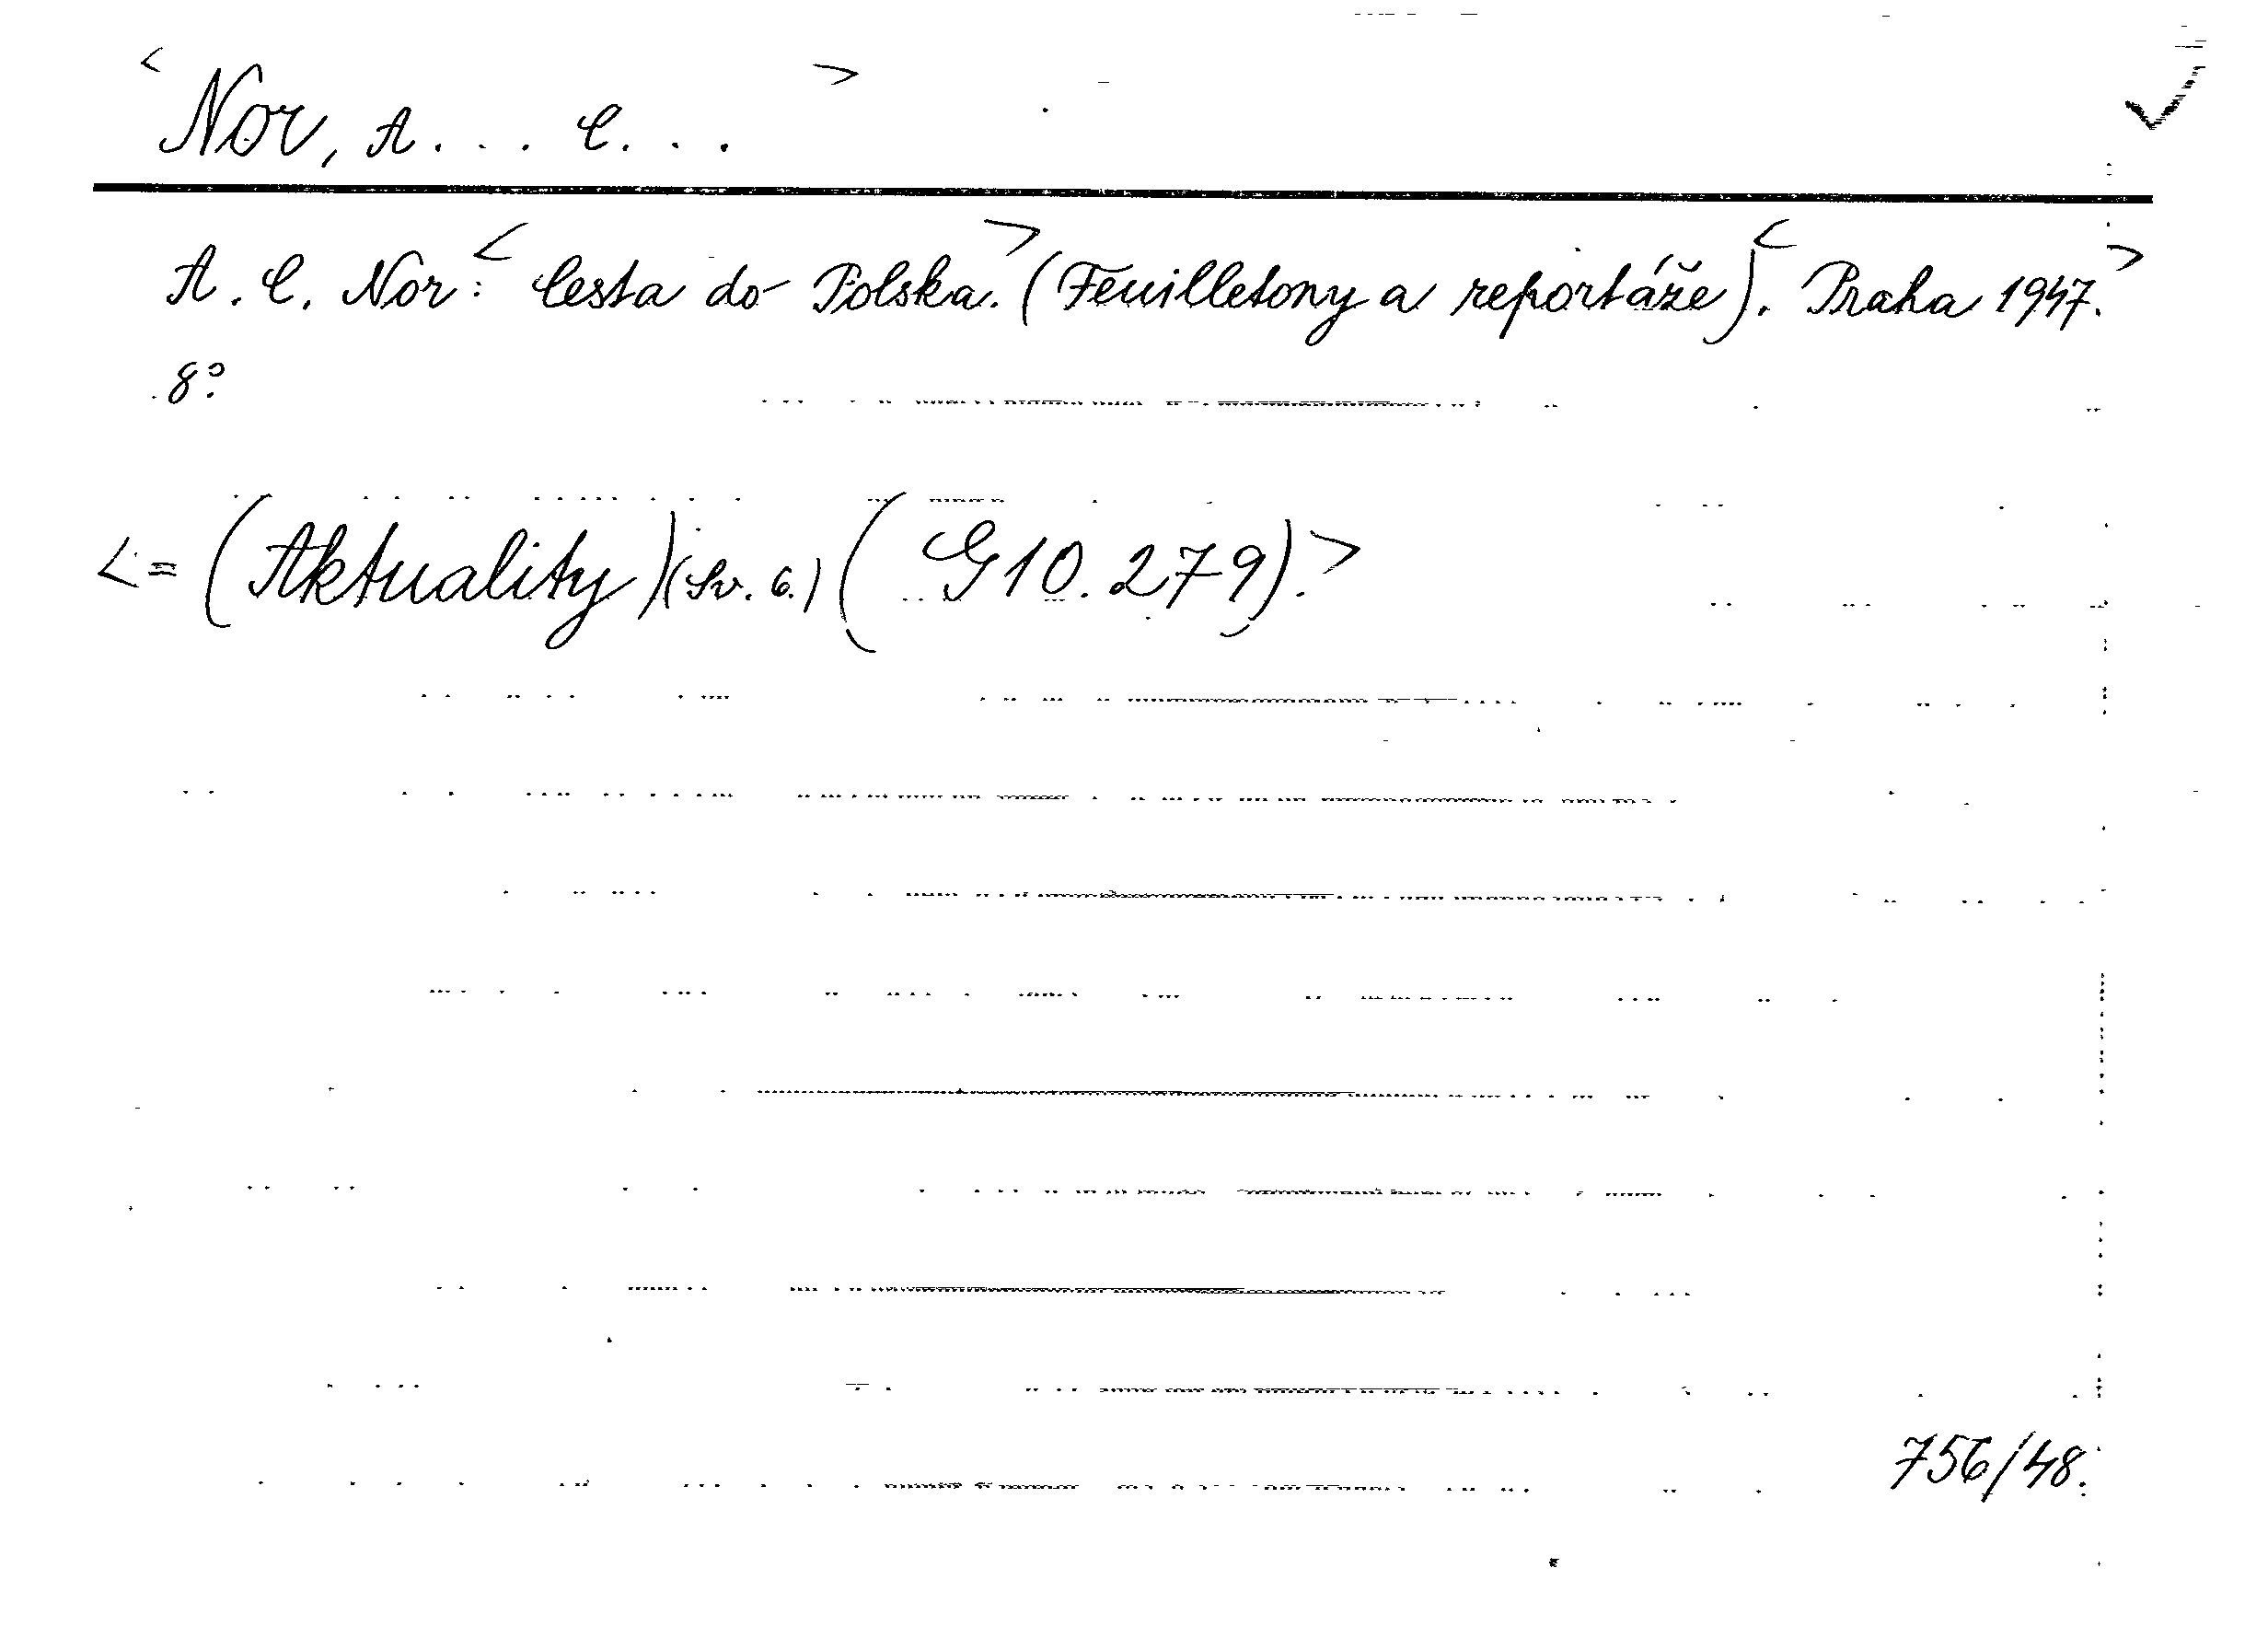 <Nor, A... C...>
A. C. Nor: <Cesta do Polska.> (Feuilletony a reportáže). <Praha 1947.>
8°.
<= (Aktuality) (Sv. 6.) (G10.279).>
756/48.